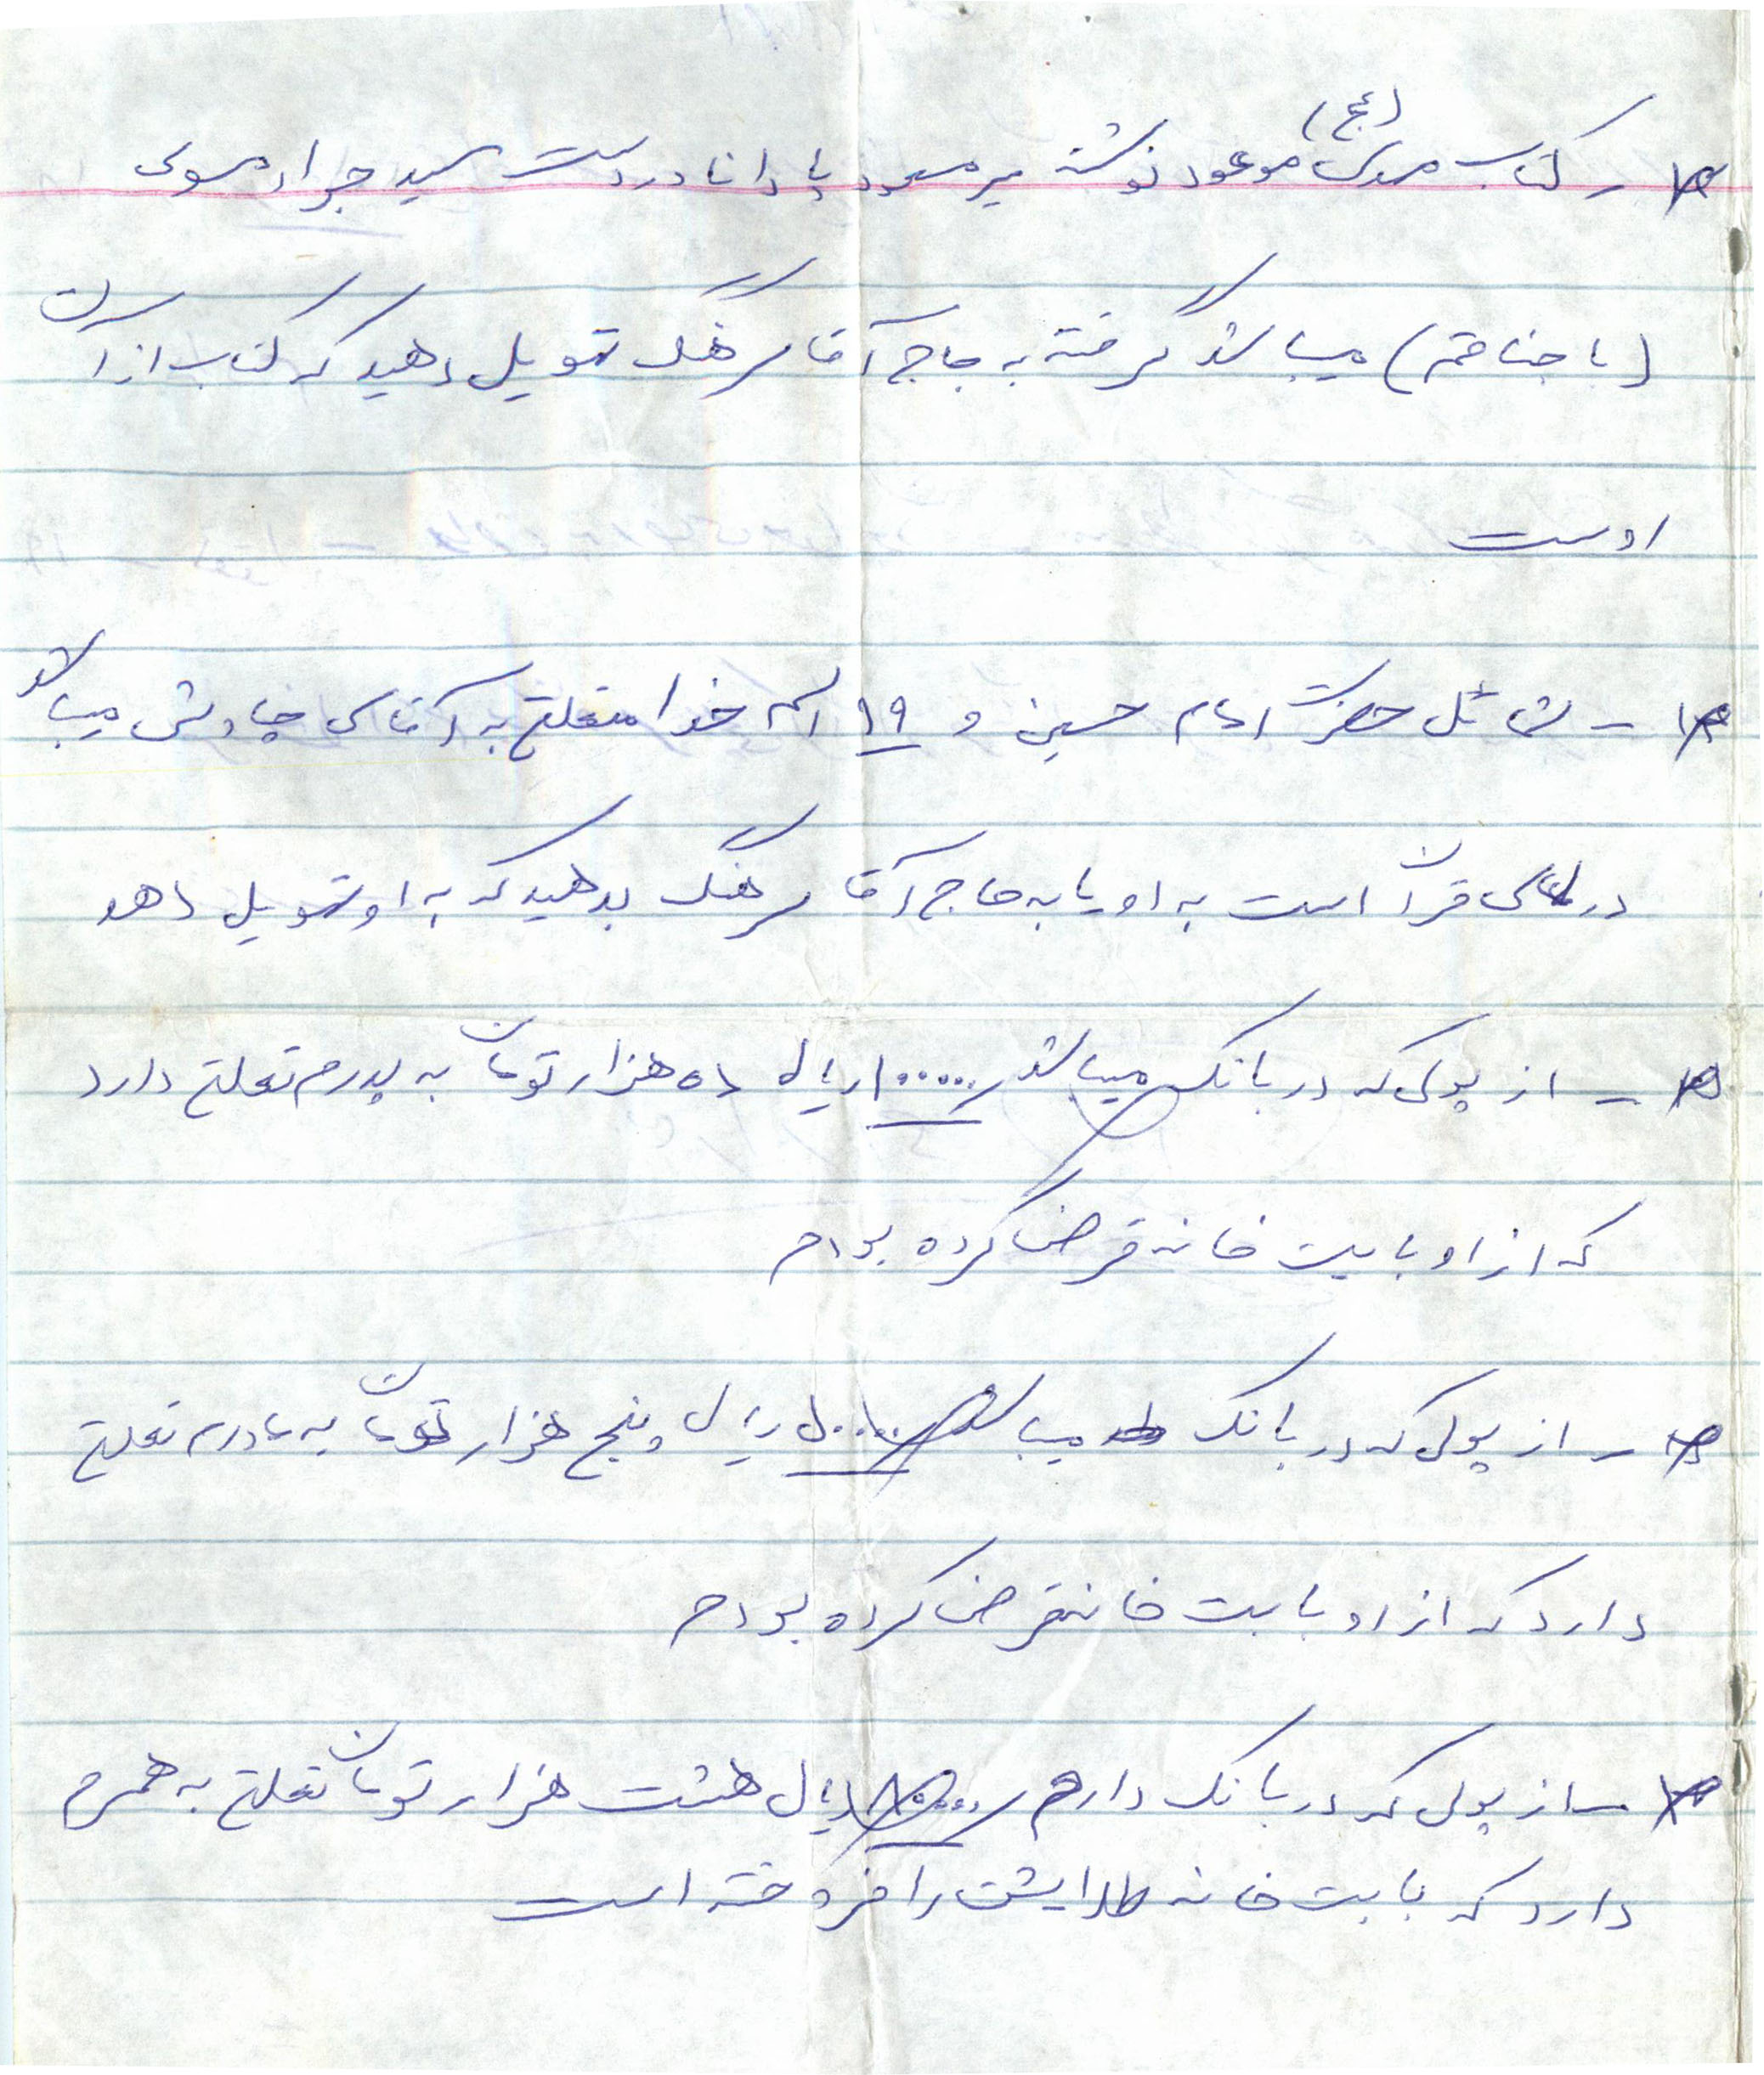 - کتاب مهدی (عج) موعود نوشته میر مسعود پادانا در دست سید جواد موسوی
(باجناقم) میباشد گرفته به حاج آقا سرهنگ تحویل دهید که کتاب از آن
اوست
- شمائل حضرت امام حسین و ۱۹ اسم خدا متعلق به آقای چاوشی میباشد
در لای قرآن است به او یا به حاج آقا سرهنگ بدهید که به او تحویل دهد
- از پولی که در بانک میباشد ۱۰۰۰۰۰ ریال ده هزار تومان به پدرم تعلق دارد
که از او بابت خانه قرض کرده بودم
- از پولی که در بانک میباشد ۵۰۰۰۰ ریال پنج هزار تومان به مادرم تعلق
دارد که از او بابت خانه قرض کرده بودم
- از پولی که در بانک دارم ۸۰۰۰۰ ریال هشت هزار تومان تعلق به همسرم
دارد که بابت خانه طلایش را فروخته است